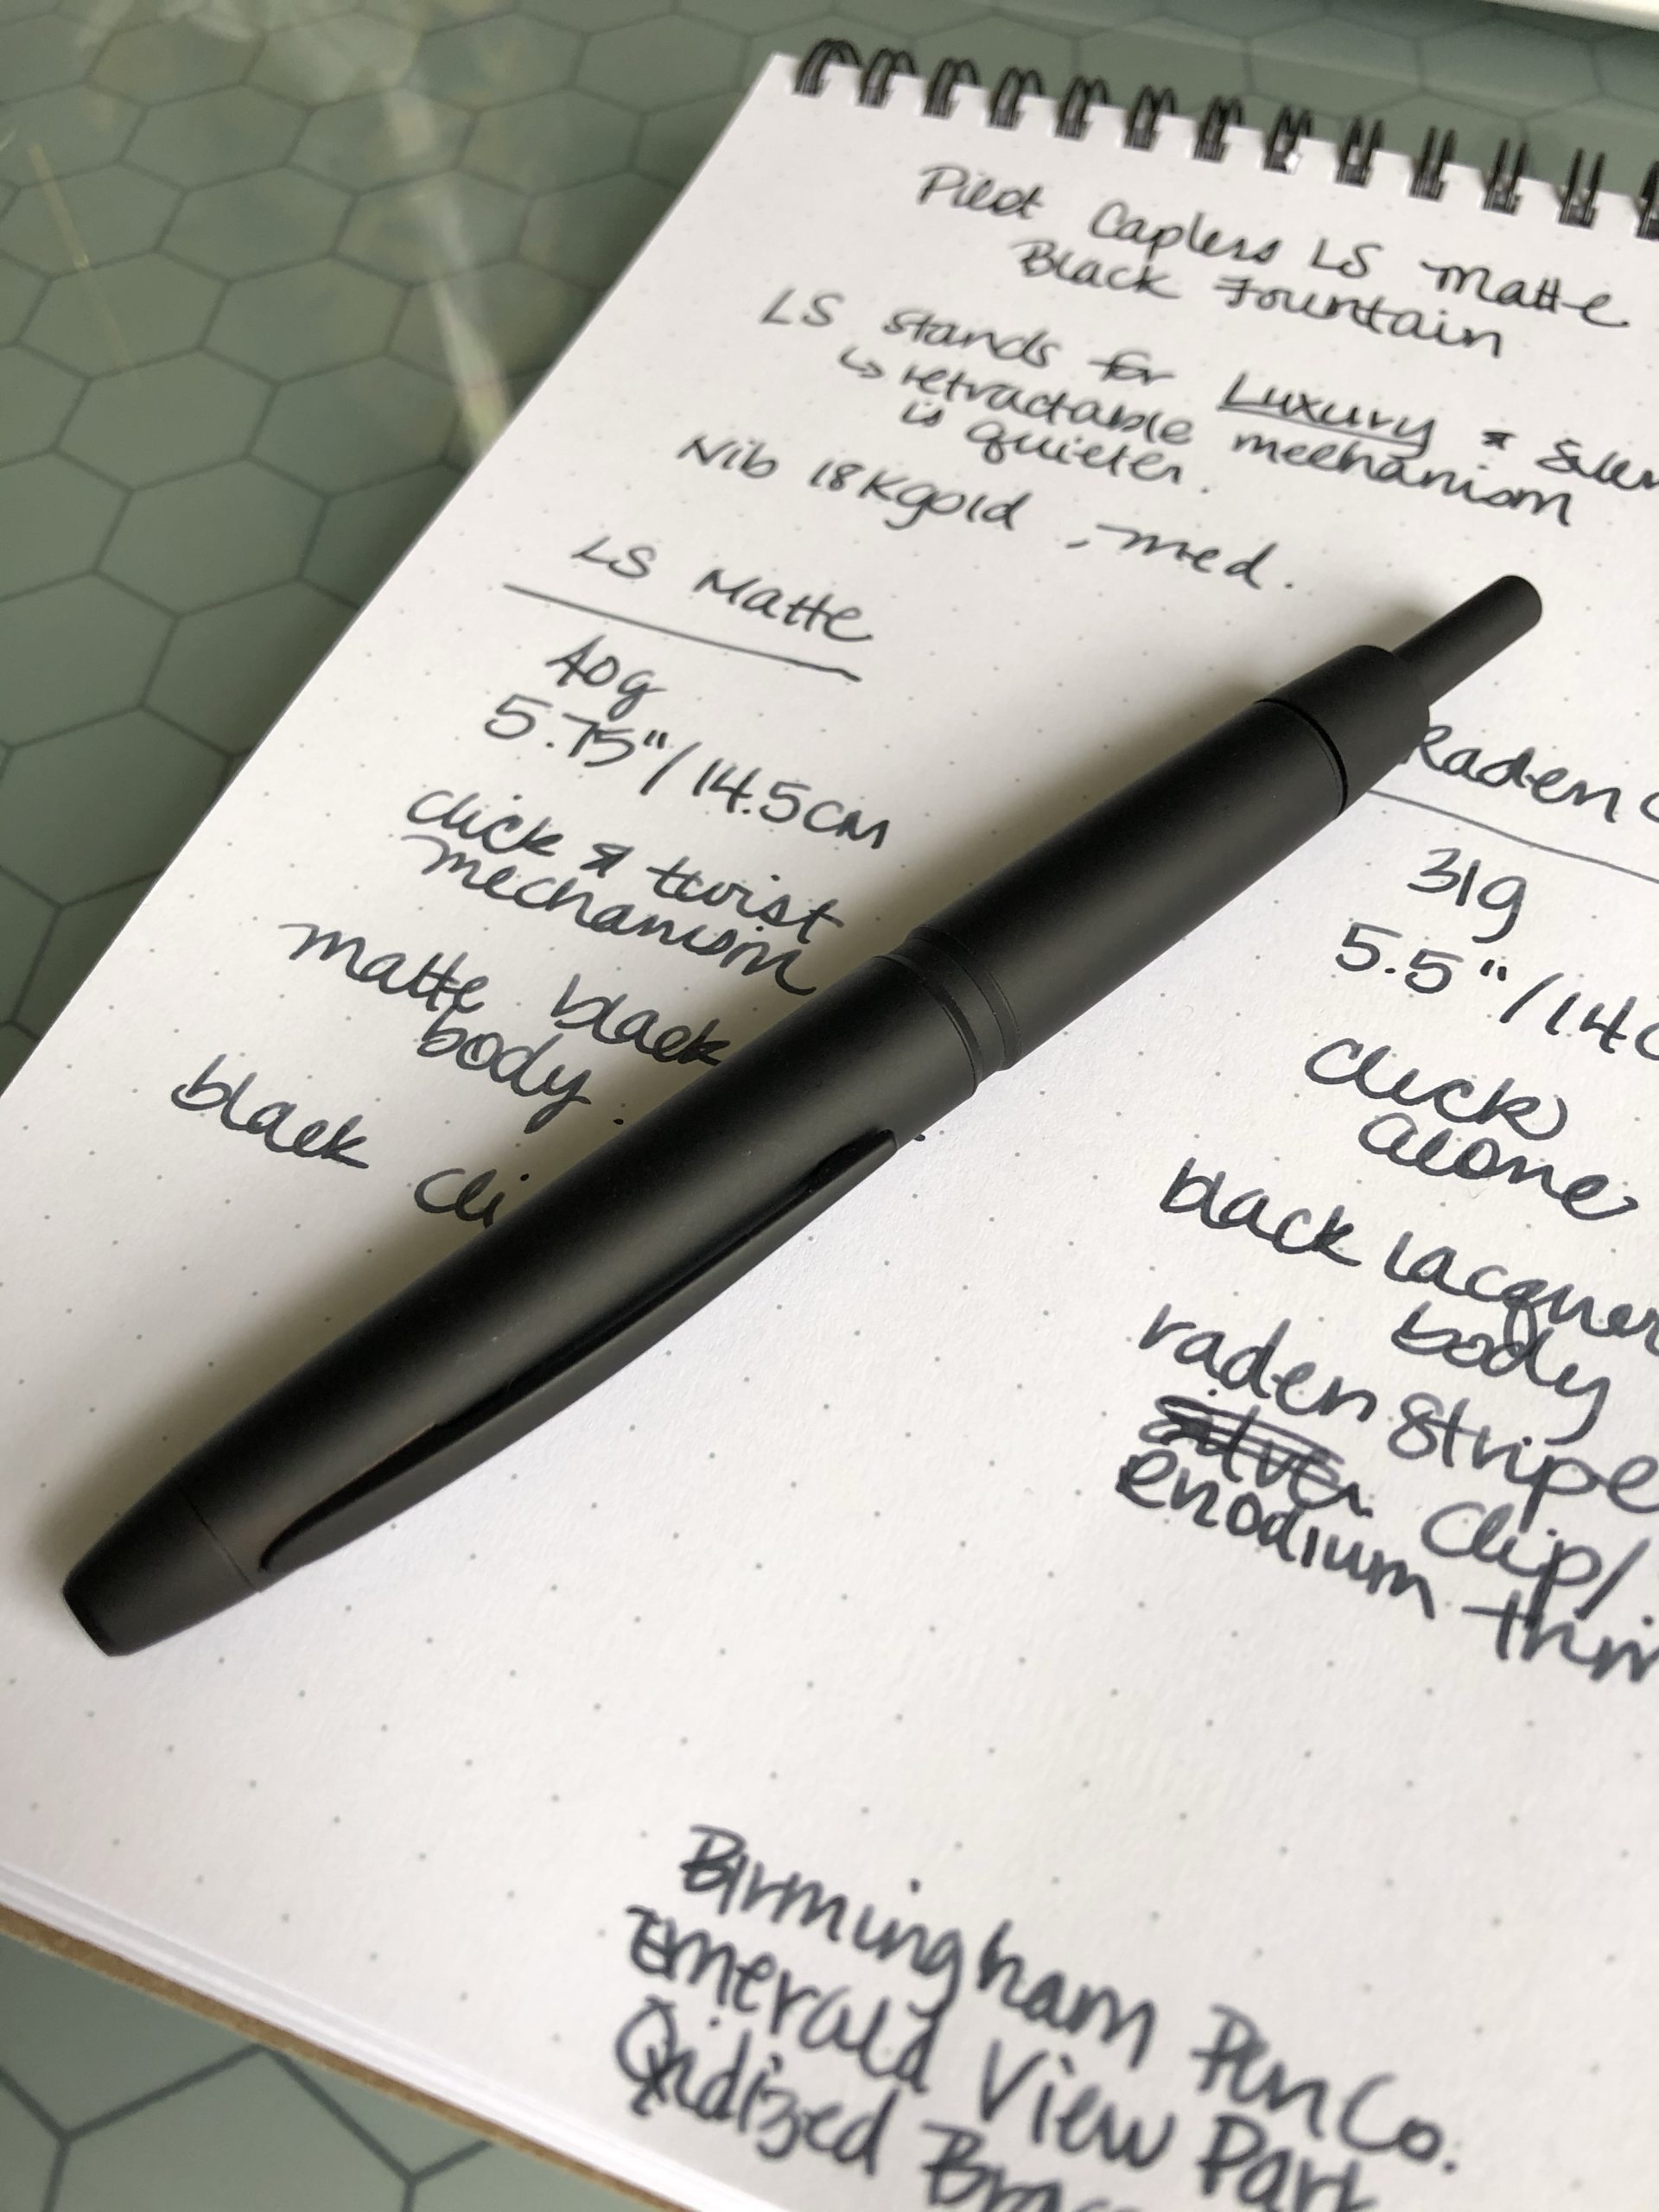 Pilot Capless LS Matte
Black Fountain
LS stands for Luxury &
↳ retractable mechanism
is quieter.
Nib 18K gold, med.
LS Matte
40g
5.75"/14.5cm
click & twist
mechanism
matte black
body.
black cli
Raden
31g
5.5"/14c
click
alone
black lacquer
body
raden stripe
silver clip/
rhodium trim
Birmingham Pen Co.
Emerald View Park
Oxidized